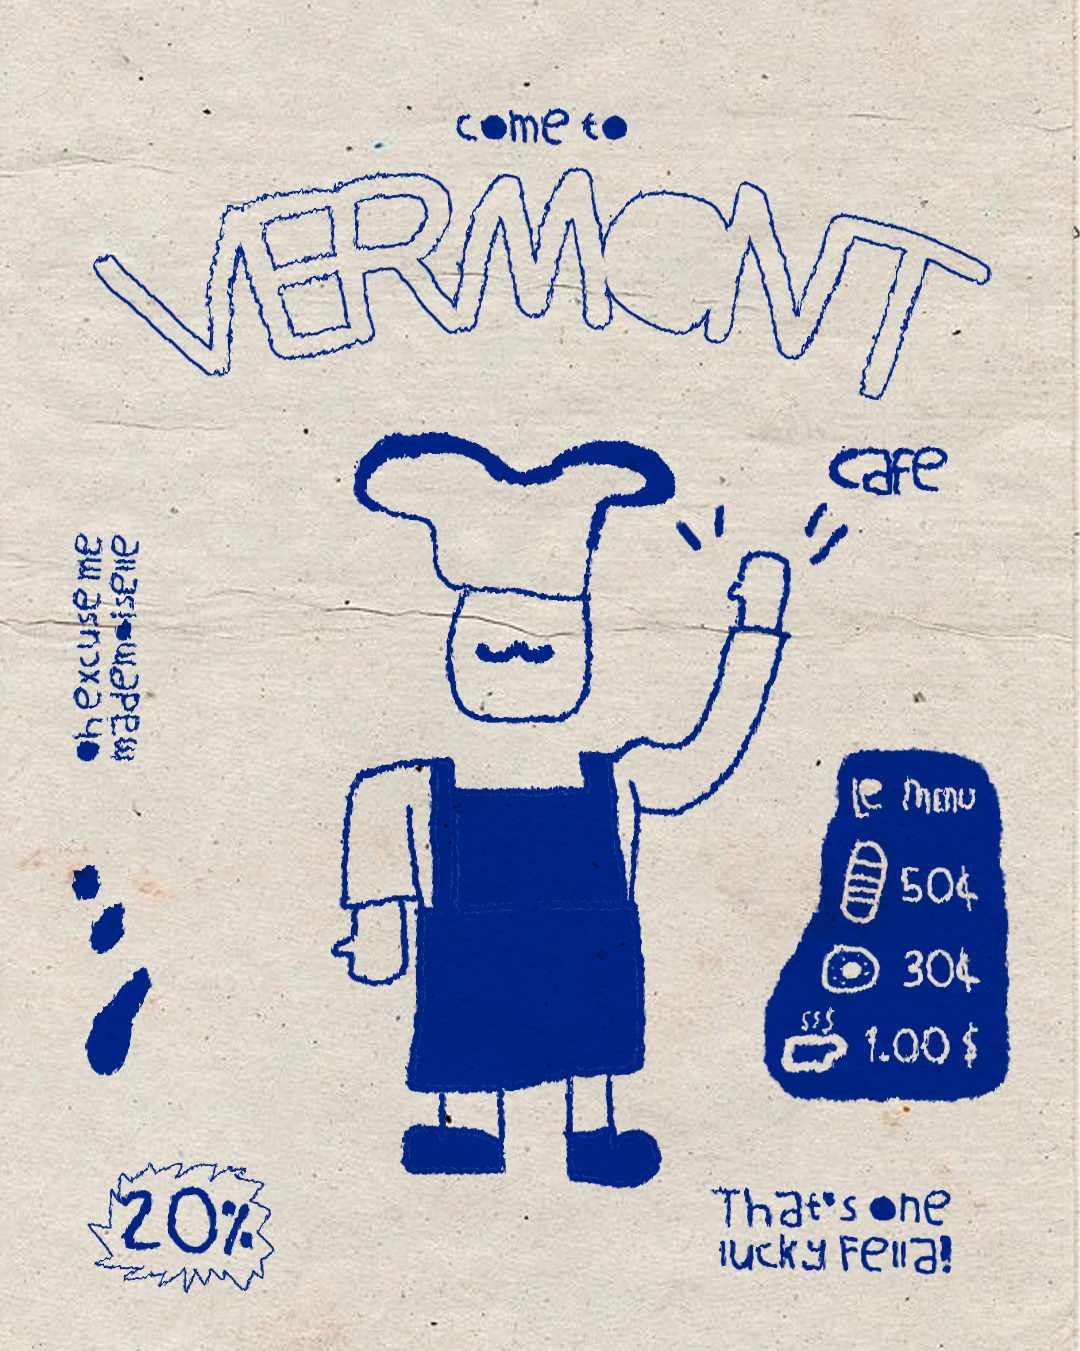 come to
VERMONT
cafe
oh excuse me
mademoiselle
le menu
50¢
30¢
1.00 $
20%
That's one
lucky Fella!